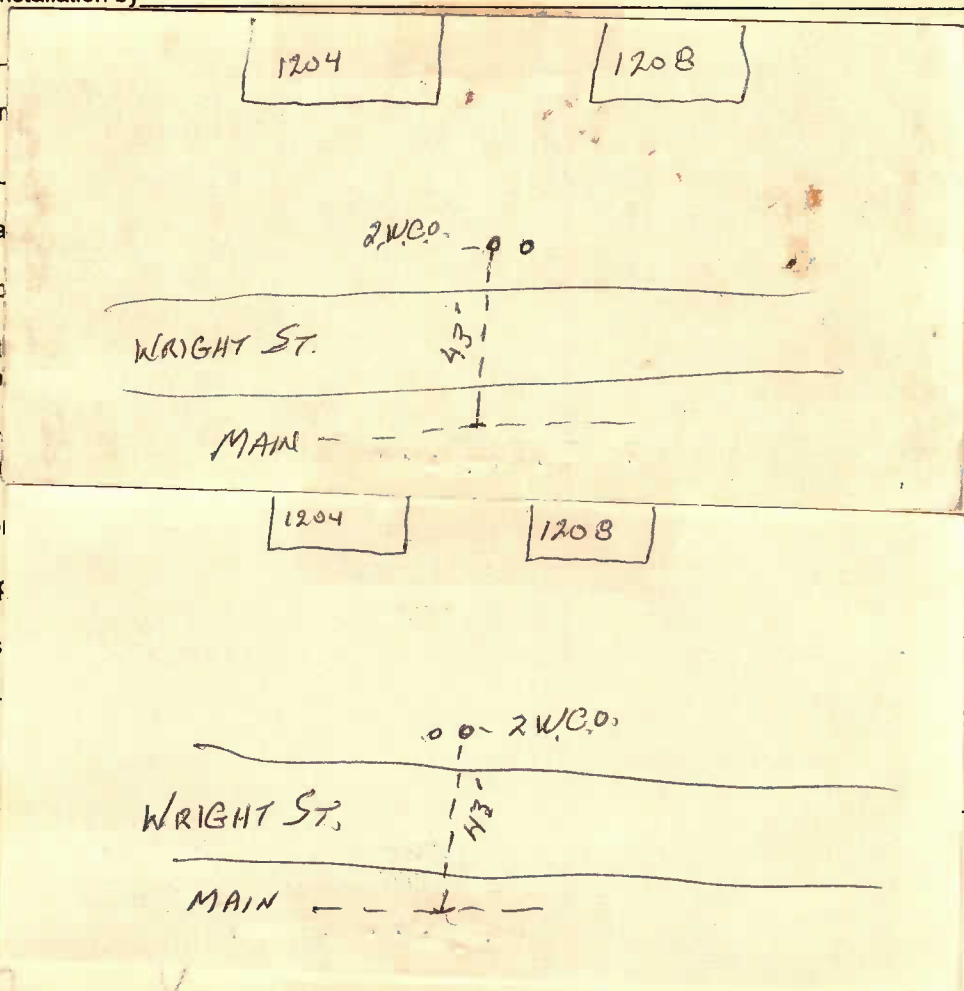 nstallation by
1204 1208
2.W.C.O.
WRIGHT ST.
43'
MAIN
1204 1208
2 W.C.O.
WRIGHT ST.
43'
MAIN